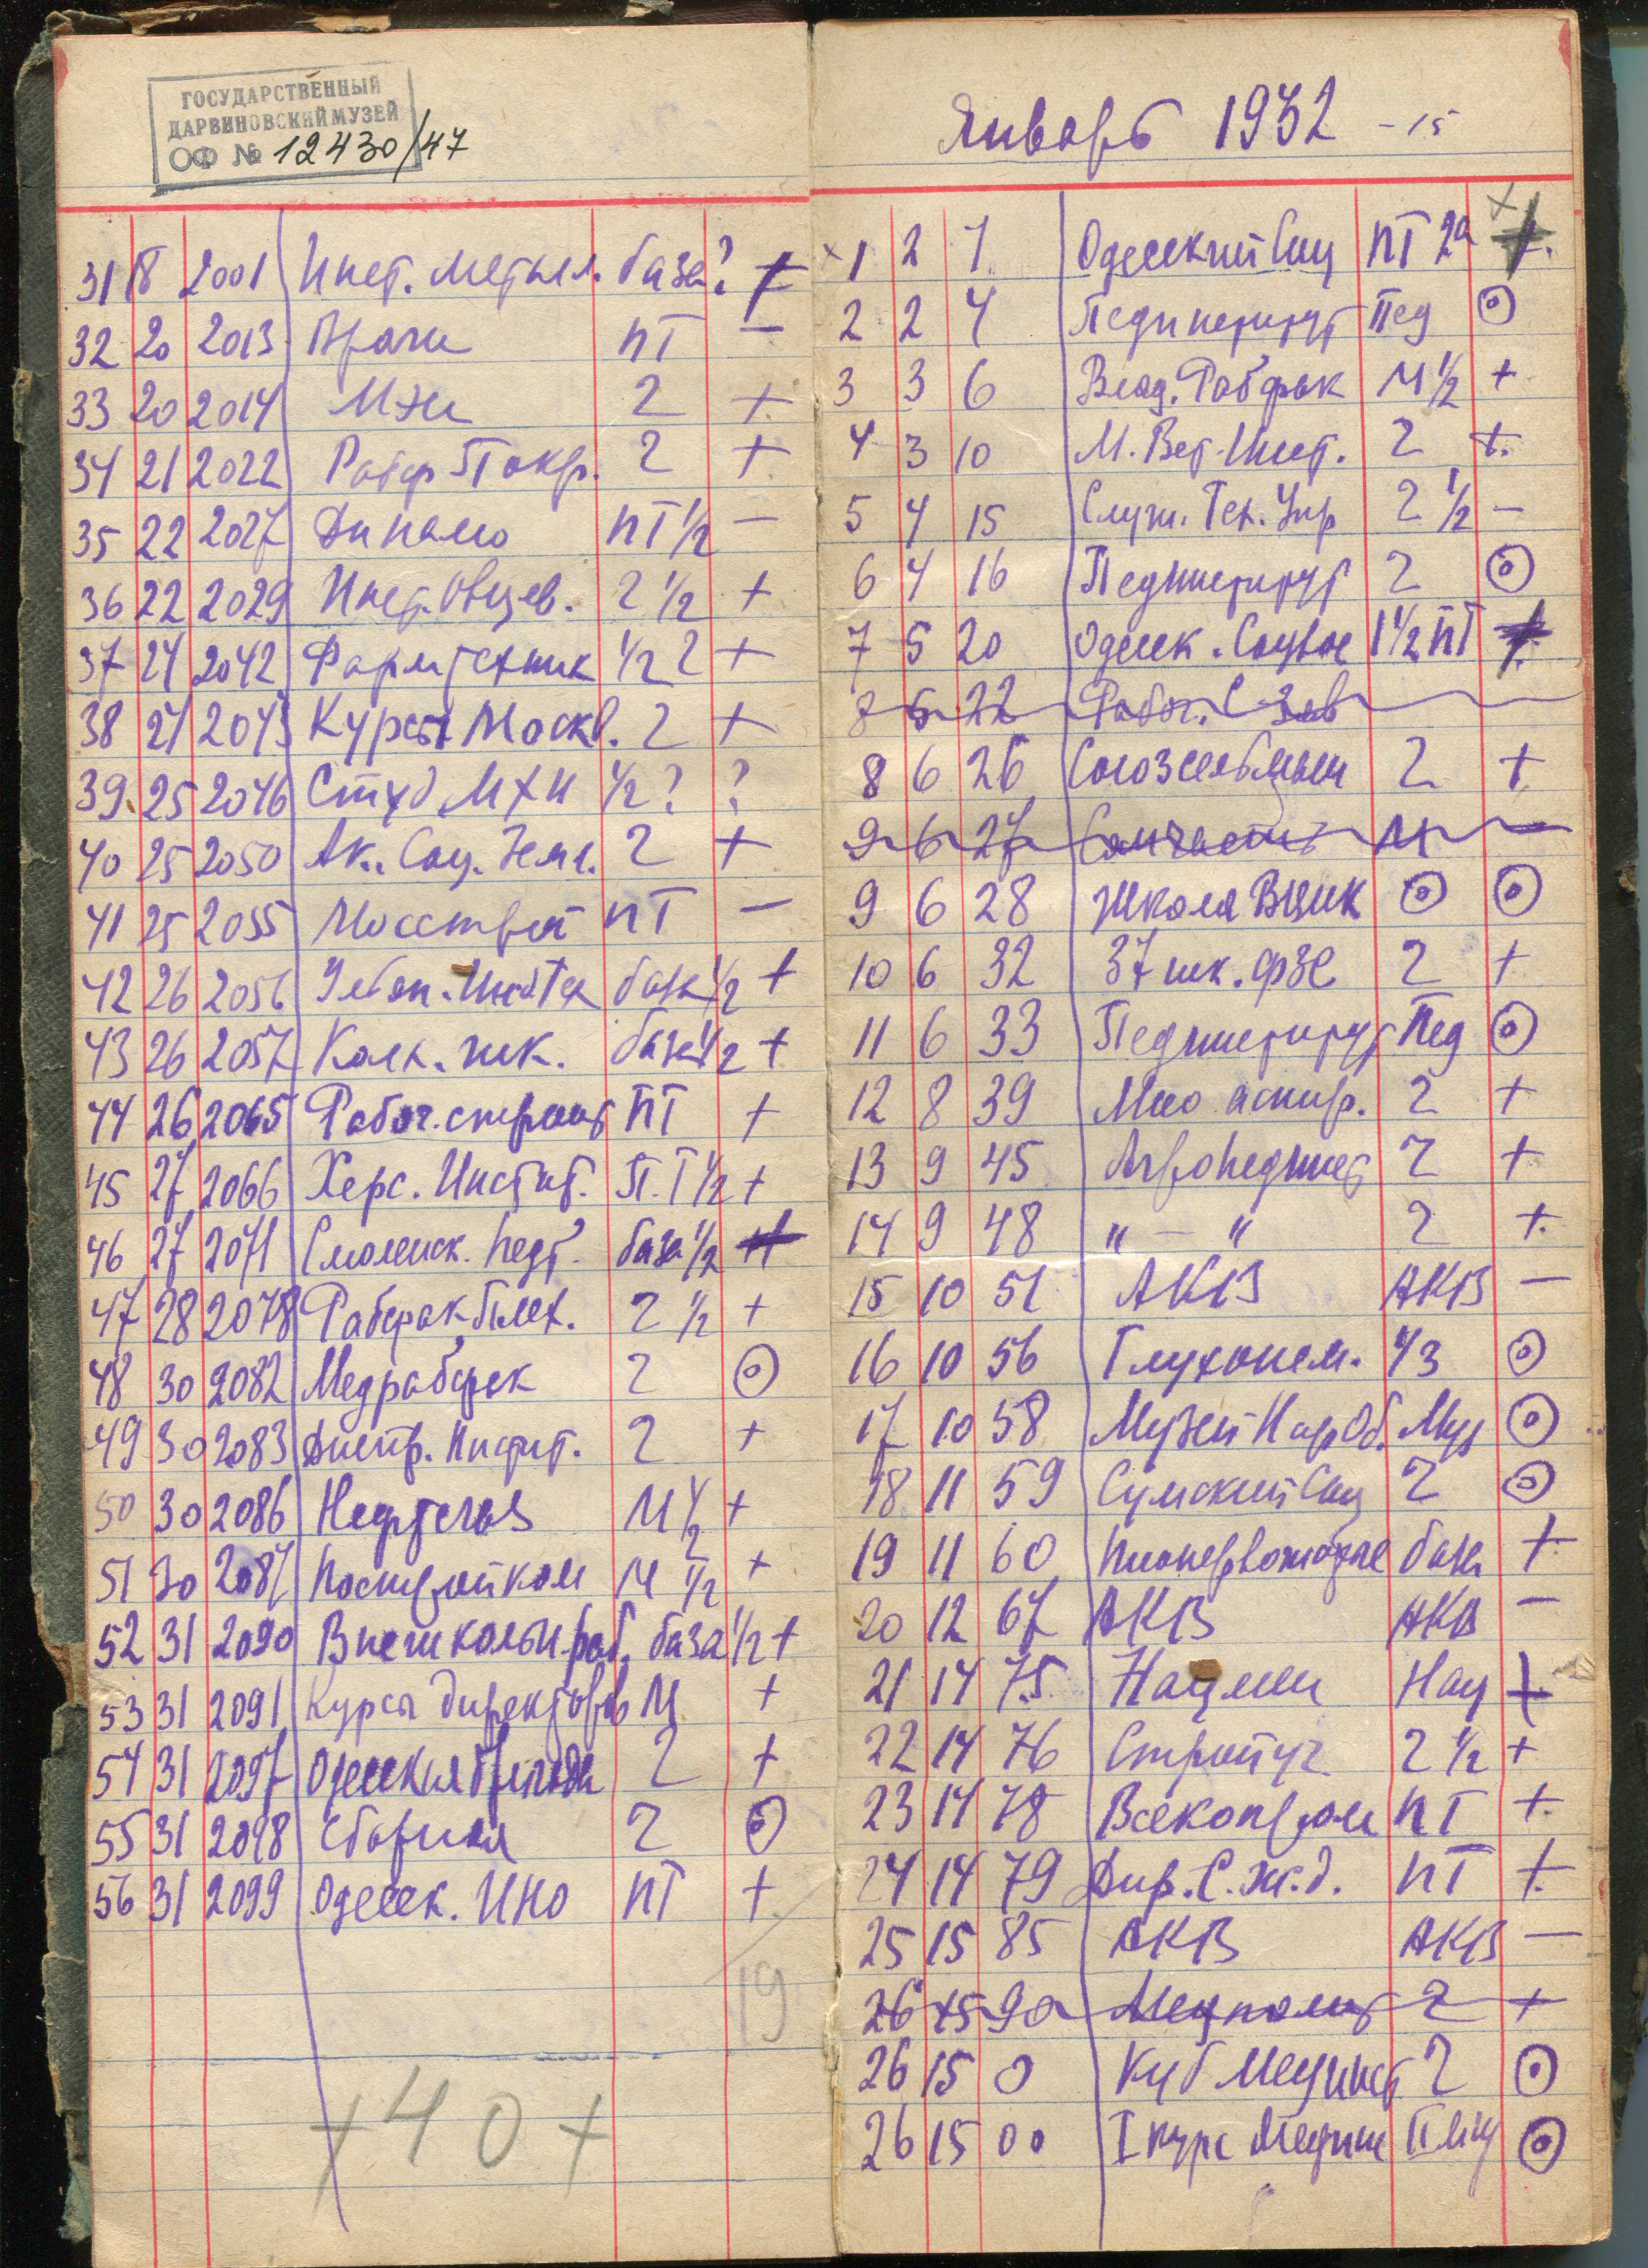 ГОСУДАРСТВЕННЫЙ
ДАРВИНОВСКИЙ МУЗЕЙ
ОФ № 12430/47
31 18 2001 Инст. Металл. база ? +
32 20 2013 Врачи ПТ —
33 20 2014 МЭИ 2 +
34 21 2022 Рабф. Покр. 2 +
35 22 2027 Динамо ПТ 1/2 —
36 22 2029 Инст. Овцев. 2 1/2 +
37 24 2042 Фармтехник 1/2 2 +
38 24 2043 Курсы Москв. 2 +
39 25 2046 Студ МХИ 1/2 ? ?
40 25 2050 Ак. Соц. Земл. 2 +
41 25 2055 Мосстрой ПТ —
42 26 2056 база 1/2 +
43 26 2057 Колх. шк. база 1/2 +
44 26 2065 Рабоч. строит ПТ +
45 27 2066 Херс. Инстит. П.Т 1/2 +
46 27 2071 Смоленск. педт. база 1/2 +
47 28 2078 Рабфак Плех. 2 1/2 +
48 30 2082 Медрабфак 2 ⊙
49 30 2083 Днепр. Инстит. 2 +
50 30 2086 М 1/2 +
51 30 2087 Постройком М 1/2 +
52 31 2090 Внешкольн. раб. база 1/2 +
53 31 2091 Курсы директоров М +
54 31 2097 Одесская 2 +
55 31 2098 Сборная 2 ⊙
56 31 2099 Одесск. ИНО ПТ +
19
+ 40 +
Январь 1932 - 15
× 1 2 1 Одесский Соц ПТ 2а +
2 2 4 Пединститут Пед ⊙
3 3 6 Влад. Рабфак М 1/2 +
4 3 10 М. Вет. Инст. 2 +
5 4 15 Служ. Тех. Упр 2 1/2 —
6 4 16 Пединститут 2 ⊙
7 5 20 Одесск. Соцвос 1 1/2 ПТ +
8 5 22 Рабоч. С. Зав
8 6 26 2 +
9 6 27 Санчасть М —
9 6 28 Школа ВЦИК ⊙ ⊙
10 6 32 37 шк. ФЗС 2 +
11 6 33 Пединститут Пед ⊙
12 8 39 аспир. 2 +
13 9 45 Агропединст 2 +
14 9 48 „ — „ 2 +
15 10 51 АКВ АКВ —
16 10 56 Глухонем. ⊙
17 10 58 Музей Нар Об. Муз ⊙
18 11 59 Сумский Соц 2 ⊙
19 11 60 Пионервожатые база +
20 12 67 АКВ АКВ —
21 14 75 Нацмен Нац +
22 14 76 Стройуч 2 1/2 +
23 14 78 Всекопром ПТ +
24 14 79 Дир. С. ж. д. ПТ +
25 15 85 АКВ АКВ —
26 15 90 2 +
26 15 0 Куб Мединст 2 ⊙
26 15 00 I курс Медин ⊙